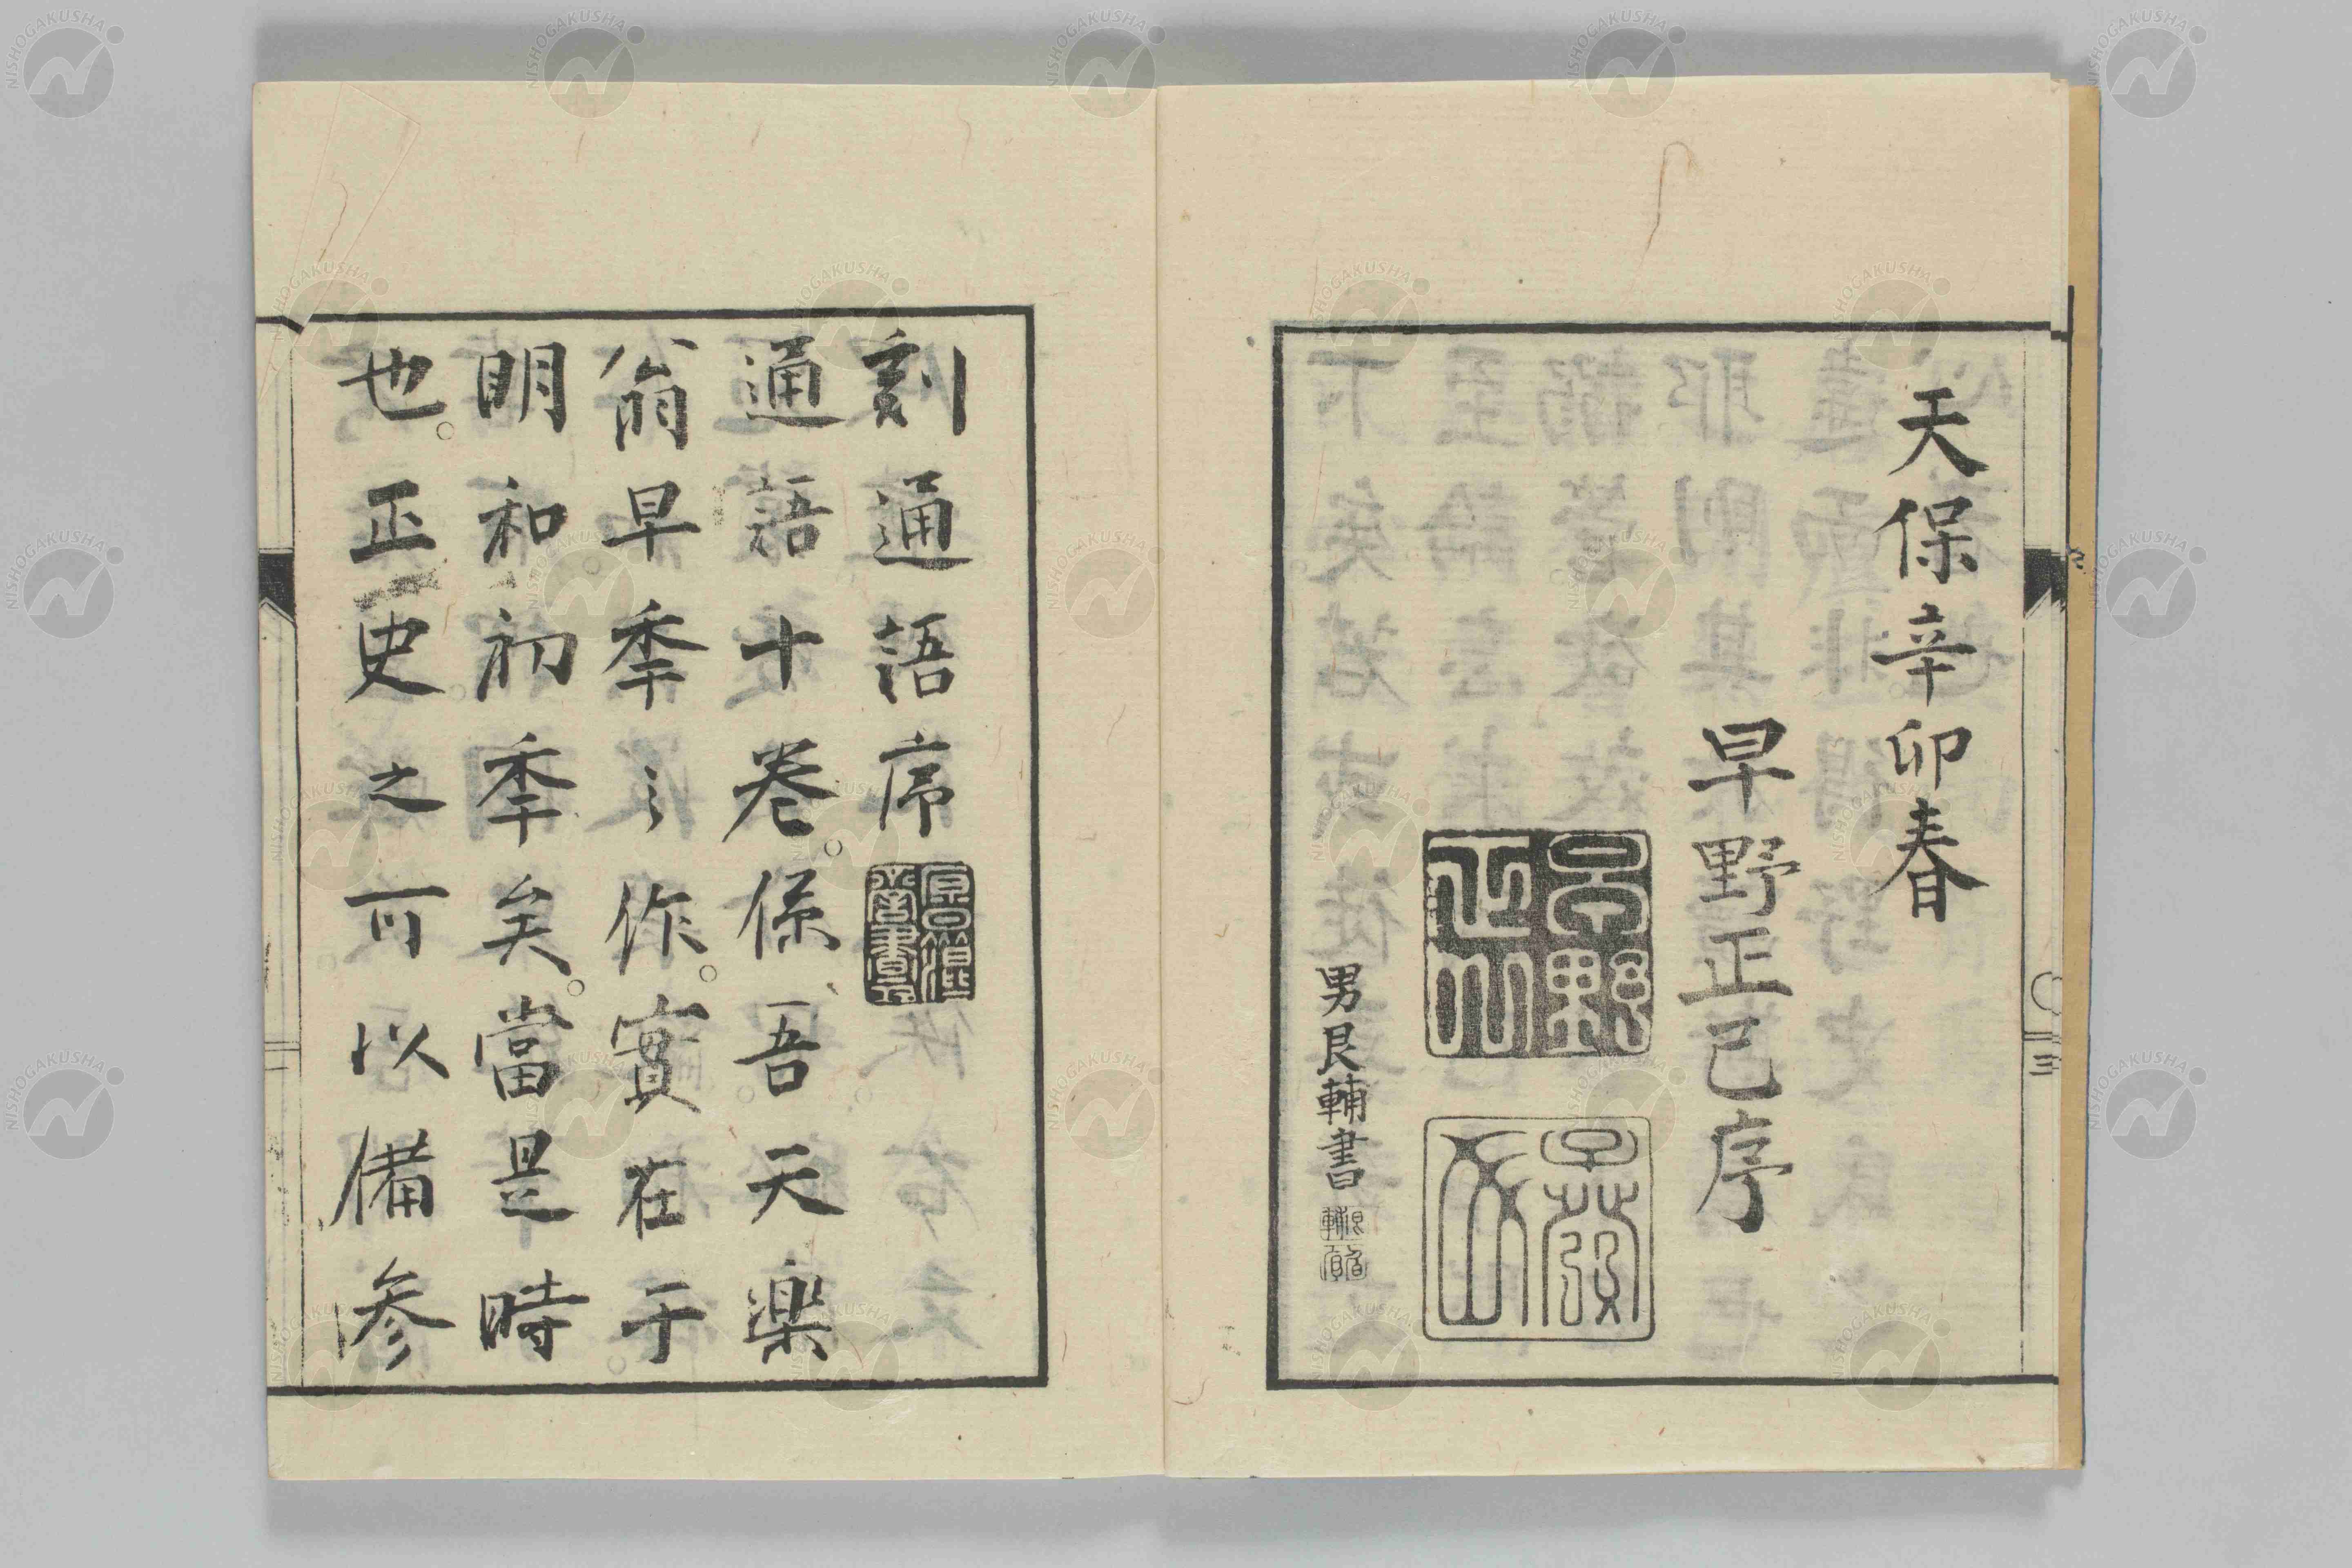 天保辛卯春
早野正己序
男艮輔書
三
刻通語序
通語十巻。係吾天樂
翁早秊之作。實在于
明和初秊矣。當是時
也。正史之可以備參
NISHOGAKUSHA